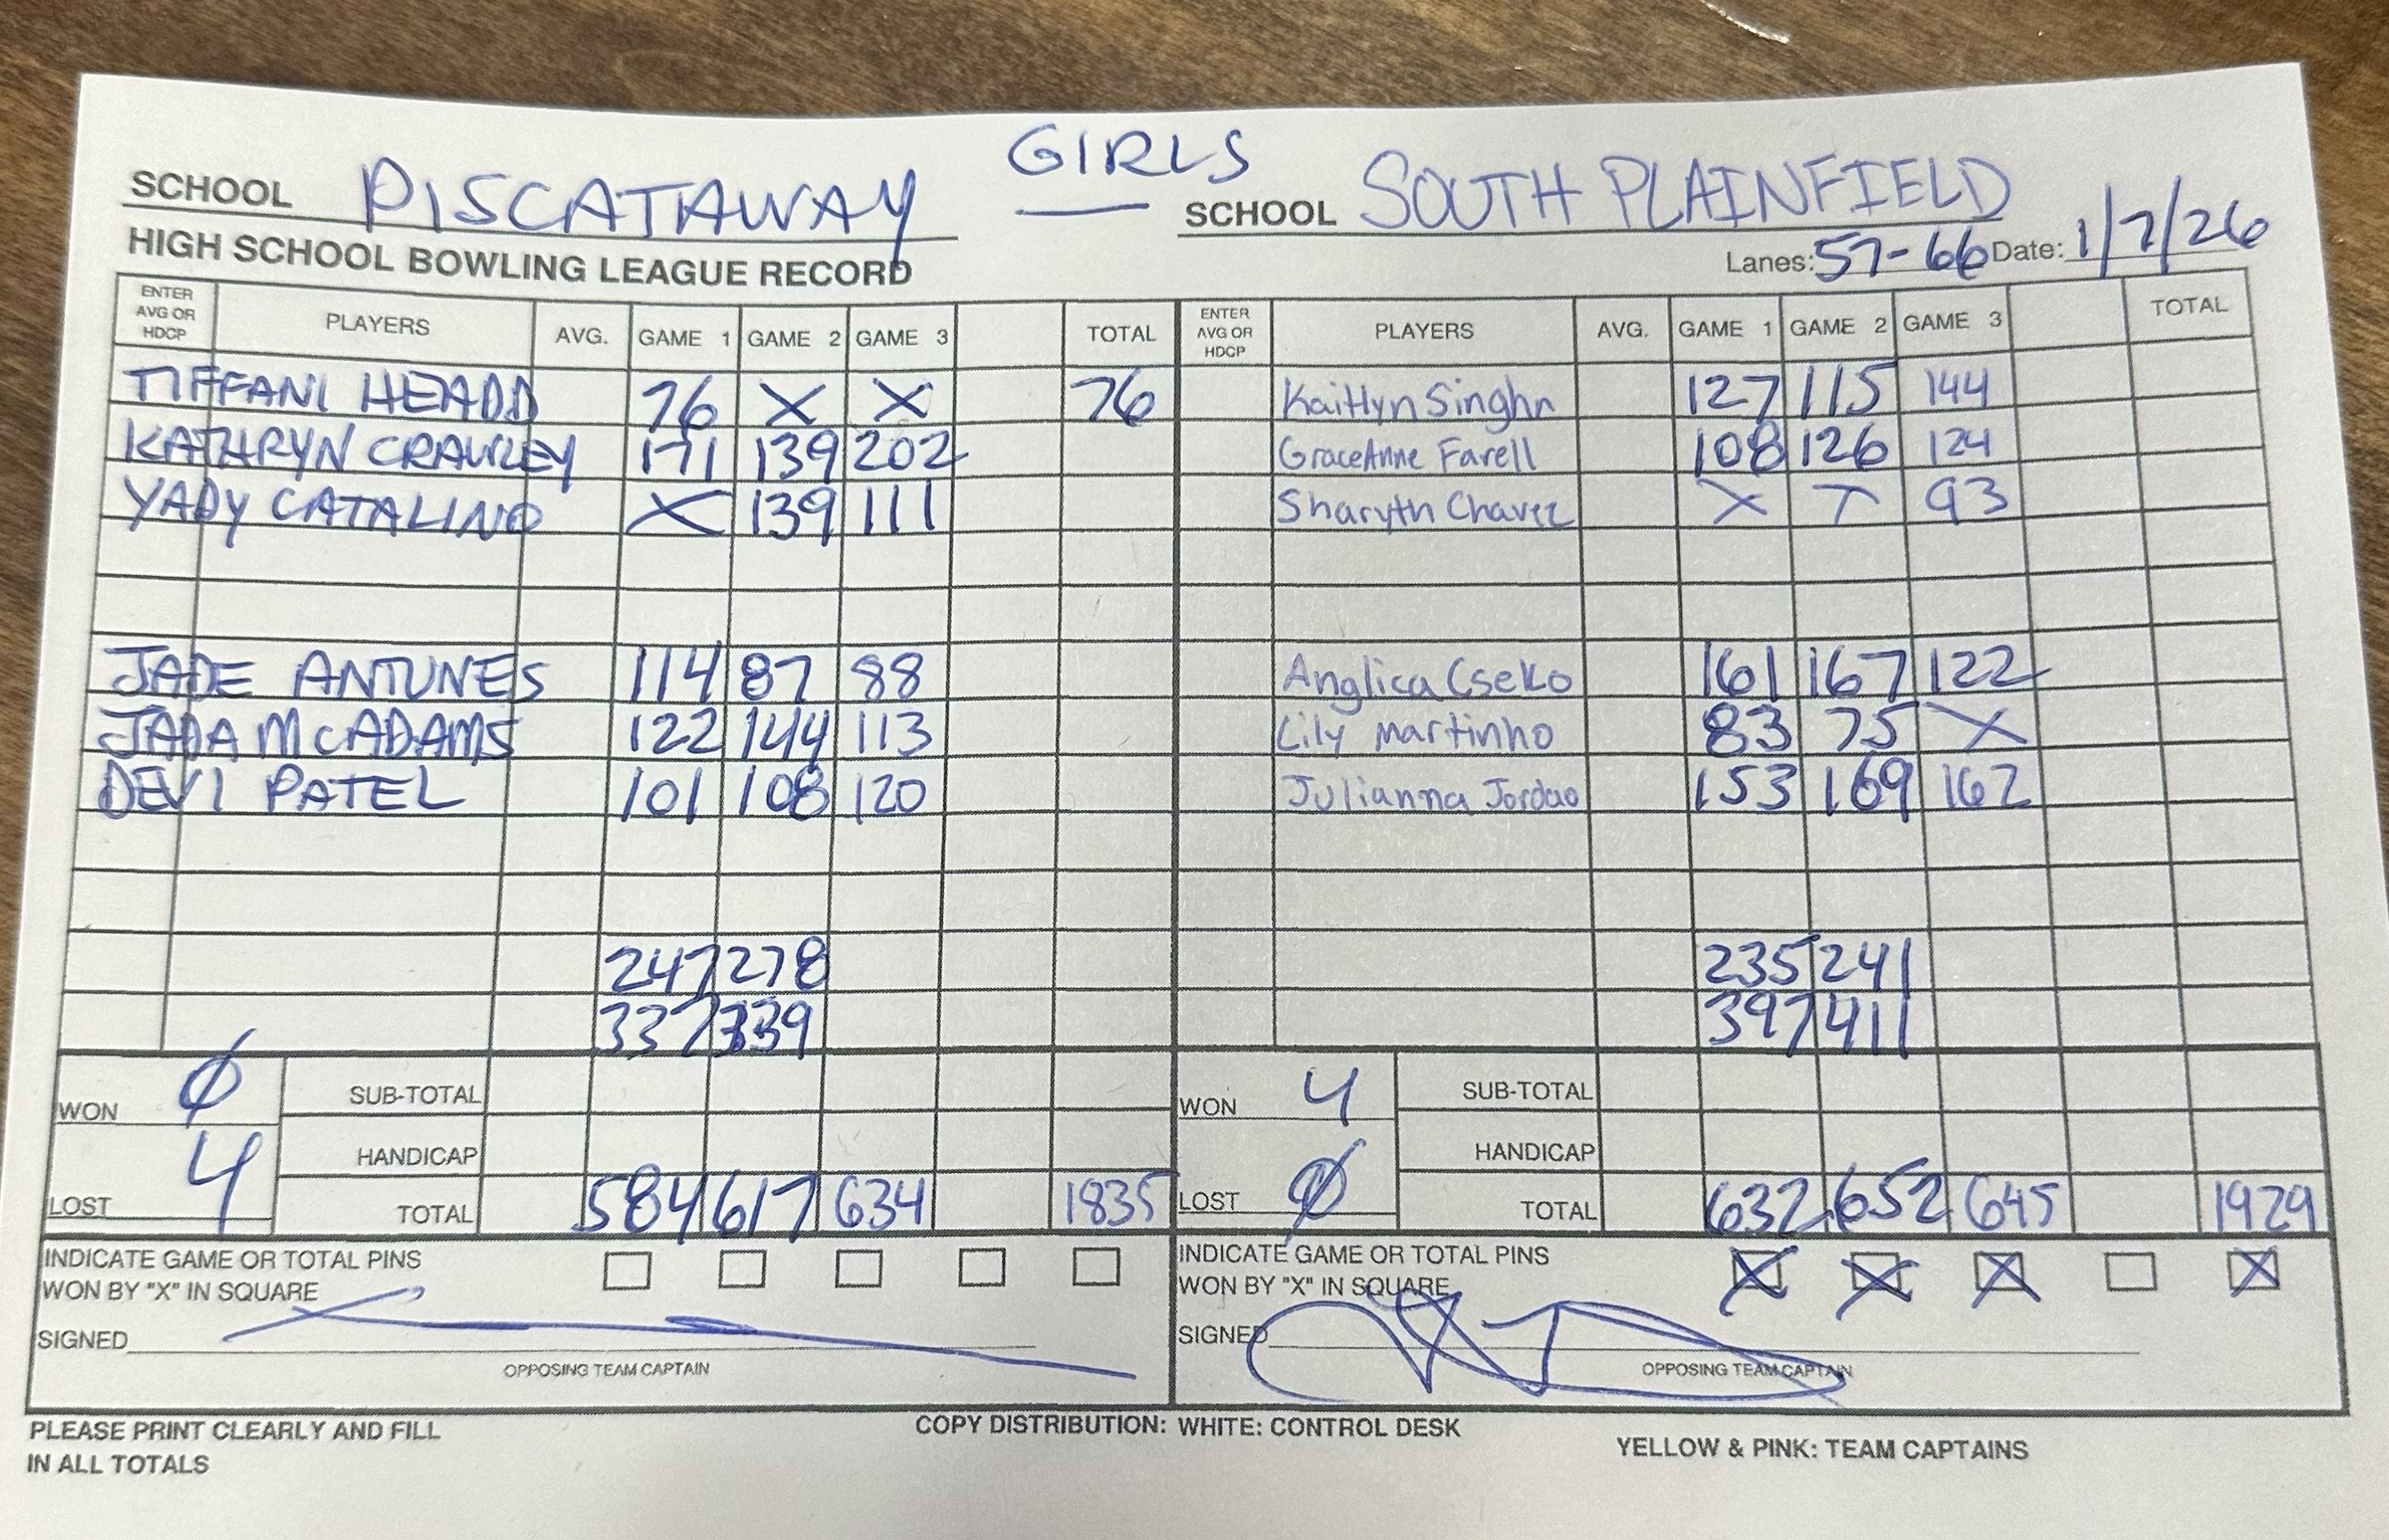 GIRLS
SCHOOL PISCATAWAY SCHOOL SOUTH PLAINFIELD
HIGH SCHOOL BOWLING LEAGUE RECORD Lanes: 57-66 Date: 1/7/26
ENTER AVG OR HDCP PLAYERS AVG. GAME 1 GAME 2 GAME 3 TOTAL ENTER AVG OR HDCP PLAYERS AVG. GAME 1 GAME 2 GAME 3 TOTAL
TIFFANI HEADD 76 X X 76 Kaitlyn Singhn 127 115 144
KATHRYN CRAWLEY 171 139 202 GraceAnne Farell 108 126 124
YADY CATALINO X 139 111 Sharyth Chavez X X 93
JADE ANTUNES 114 87 88 Anglica Cseko 161 167 122
JADA McADAMS 122 144 113 Lily Martinho 83 75 X
DEVI PATEL 101 108 120 Julianna Jordao 153 169 162
247 278 235 241
337 339 397 411
WON 0 SUB-TOTAL WON 4 SUB-TOTAL
HANDICAP HANDICAP
LOST 4 TOTAL 584 617 634 1835 LOST 0 TOTAL 632 652 645 1929
INDICATE GAME OR TOTAL PINS INDICATE GAME OR TOTAL PINS
WON BY "X" IN SQUARE WON BY "X" IN SQUARE X X X X
SIGNED SIGNED
OPPOSING TEAM CAPTAIN OPPOSING TEAM CAPTAIN
PLEASE PRINT CLEARLY AND FILL COPY DISTRIBUTION: WHITE: CONTROL DESK YELLOW & PINK: TEAM CAPTAINS
IN ALL TOTALS